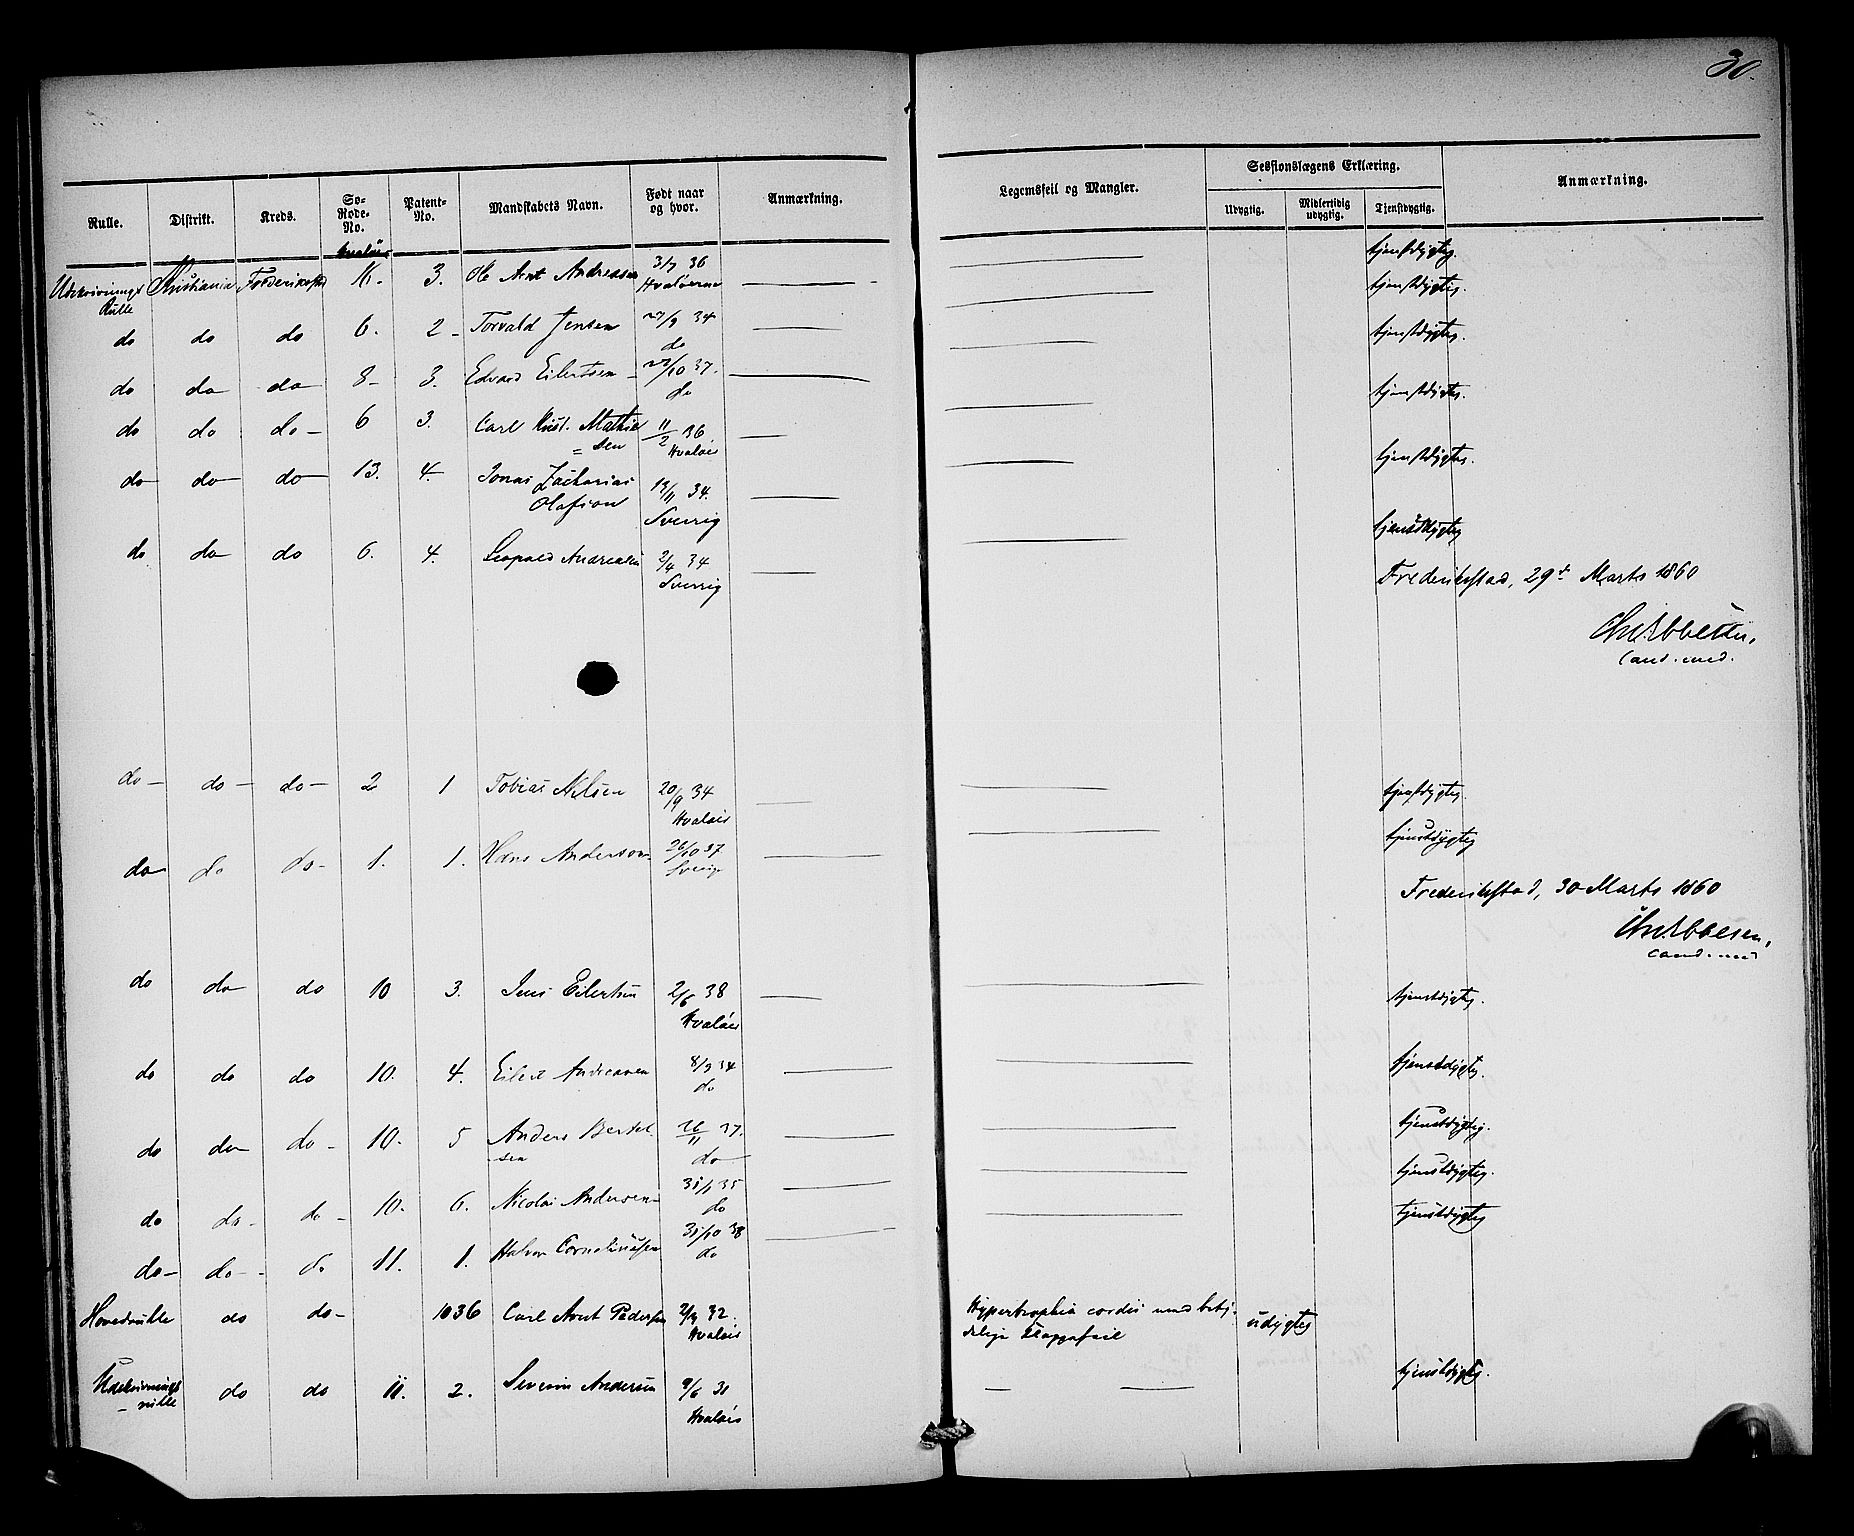 30.
Rulle. Distrikt. Kreds. Sø-Rode-No. Patent-No. Mandskabets Navn. Født naar og hvor. Anmærkning. Legemsfeil og Mangler. Sessionslægens Erklæring. Udygtig. Midlertidig udygtig. Tjenstdygtig. Anmærkning.
Udskrivnings Rulle Christiania Frederikstad 3. Ole Arnt Andreasen 3/7 36 Hvaløerne — tjenstdygtig.
do do do 6. 2 Torvald Jensen 34 do — tjenstdygtig.
do do do 8 3. Edvard Eilertsen 37. do — tjenstdygtig.
do do do 6 3. Carl Krist. Mathiesen 11/2 36 Hvaløer — tjenstdygtig.
do do do 13. 4. Jonas Zacharias Olafson 19/11 34. Sverrig — tjenstdygtig.
do do do 6. 4. Leopold Andreasen 2/4 34 Sverrig — tjenstdygtig
Frederikstad, 29de Marts 1860
cand. med.
do do do 2 1 Tobias Nilsen 20/9 34 Hvaløer — tjenstdygtig.
do do do 1. 1. Hans Anderson 26/10 37 Sverige — tjenstdygtig
Frederikstad, 30 Marts 1860
cand. med
do do do 10 3. Jens Eilertsen 2/6 38 Hvaløer — tjenstdygtig.
do do do 10. 4. Eilert Andreasen 8/9 34 do — tjenstdygtig.
do do do 10. 5 Anders Bertelsen 26/11 37. do — tjenstdygtig.
do do do 10. 6. Nicolai Andersen 35 do — tjenstdygtig.
do do do 11. 1. Halvor Corneliussen 31/10 38 do — tjenstdygtig
Hovedrulle do do 1036 Carl Arnt Pedersen 2/9 32. Hvaløer Hypertrophia cordis med betydelige Klappefeil udygtig
Udskrivnings rulle do do 11. 2. Severin Andersen 9/6 31 Hvaløer — tjenstdygtig.